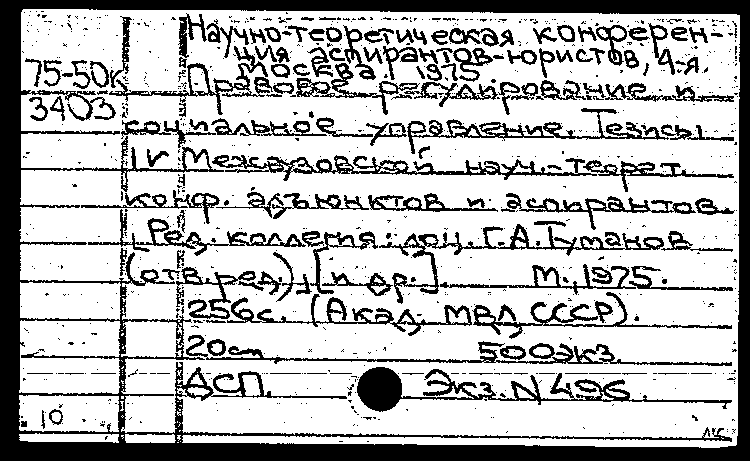 Научно-теоретическая конферен-
ция аспирантов-юристов, 4-я.
Москва. 1975
75-50к Правовое регулирование и
3403 социальное управление. Тезисы
IV Межвузовской науч.-теорет.
конф. адъюнктов и аспирантов.
[Ред. коллегия: доц. Г.А.Туманов
(отв.ред.)] [и др.]. М., 1975.
256с. (Акад. МВД СССР).
20см. 500экз.
ДСП. Экз. N 496.
10